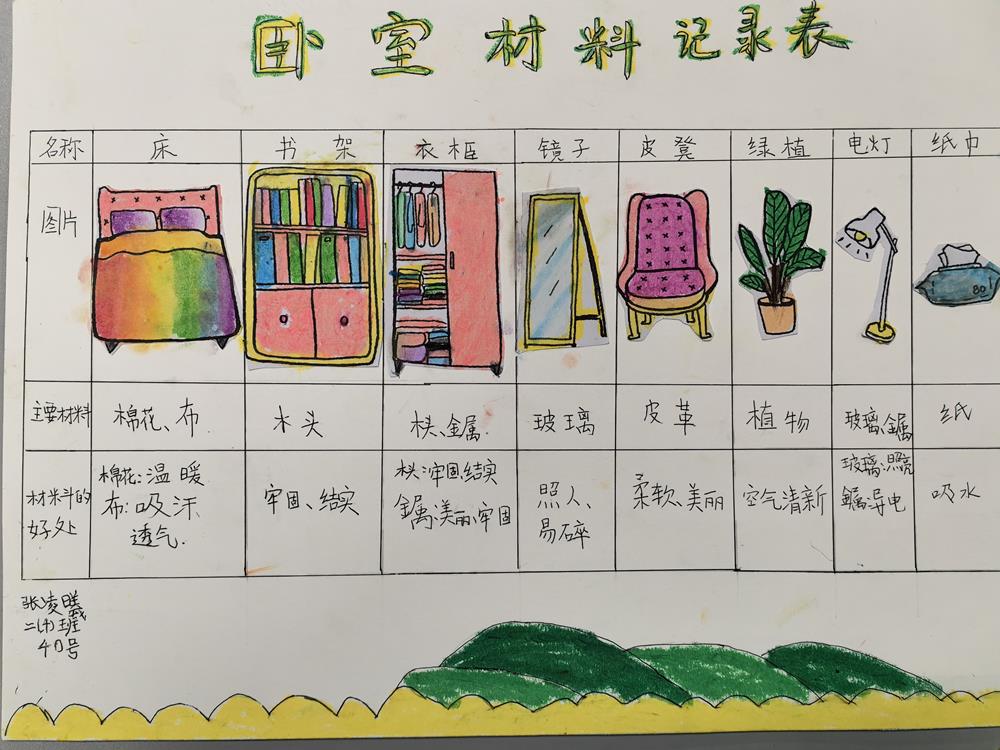 卧室材料记录表
名称 床 书架 衣柜 镜子 皮凳 绿植 电灯 纸巾
图片
80
主要材料 棉花、布 木头 木头、金属 玻璃 皮革 植物 玻璃、金属 纸
材料的好处 棉花:温暖 布:吸汗透气 牢固、结实 木头:牢固、结实 金属:美丽、牢固 照人、易碎 柔软、美丽 空气清新 玻璃:照亮 金属:导电 吸水
张凌曦
二(4)班
40号